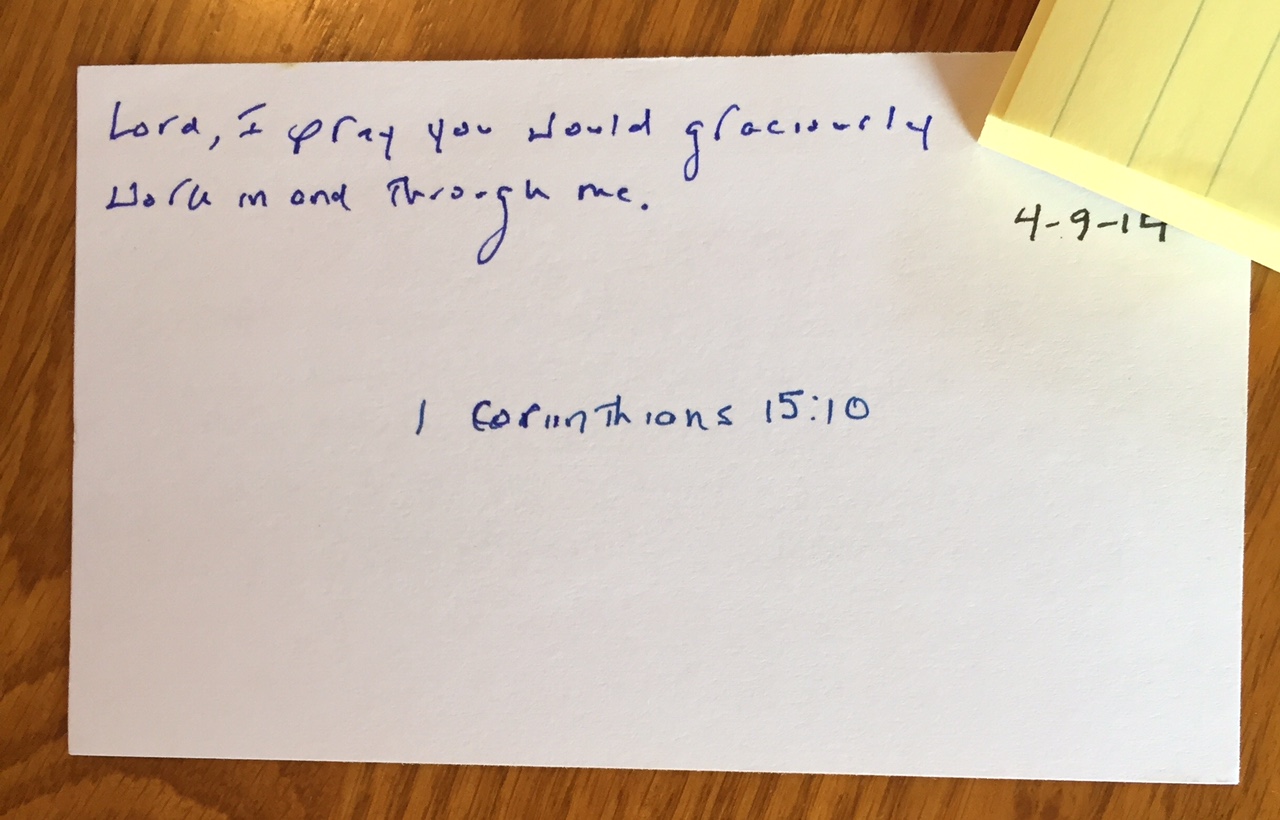 Lord, I pray you would graciously
work in and through me.
4-9-14
1 Corinthians 15:10